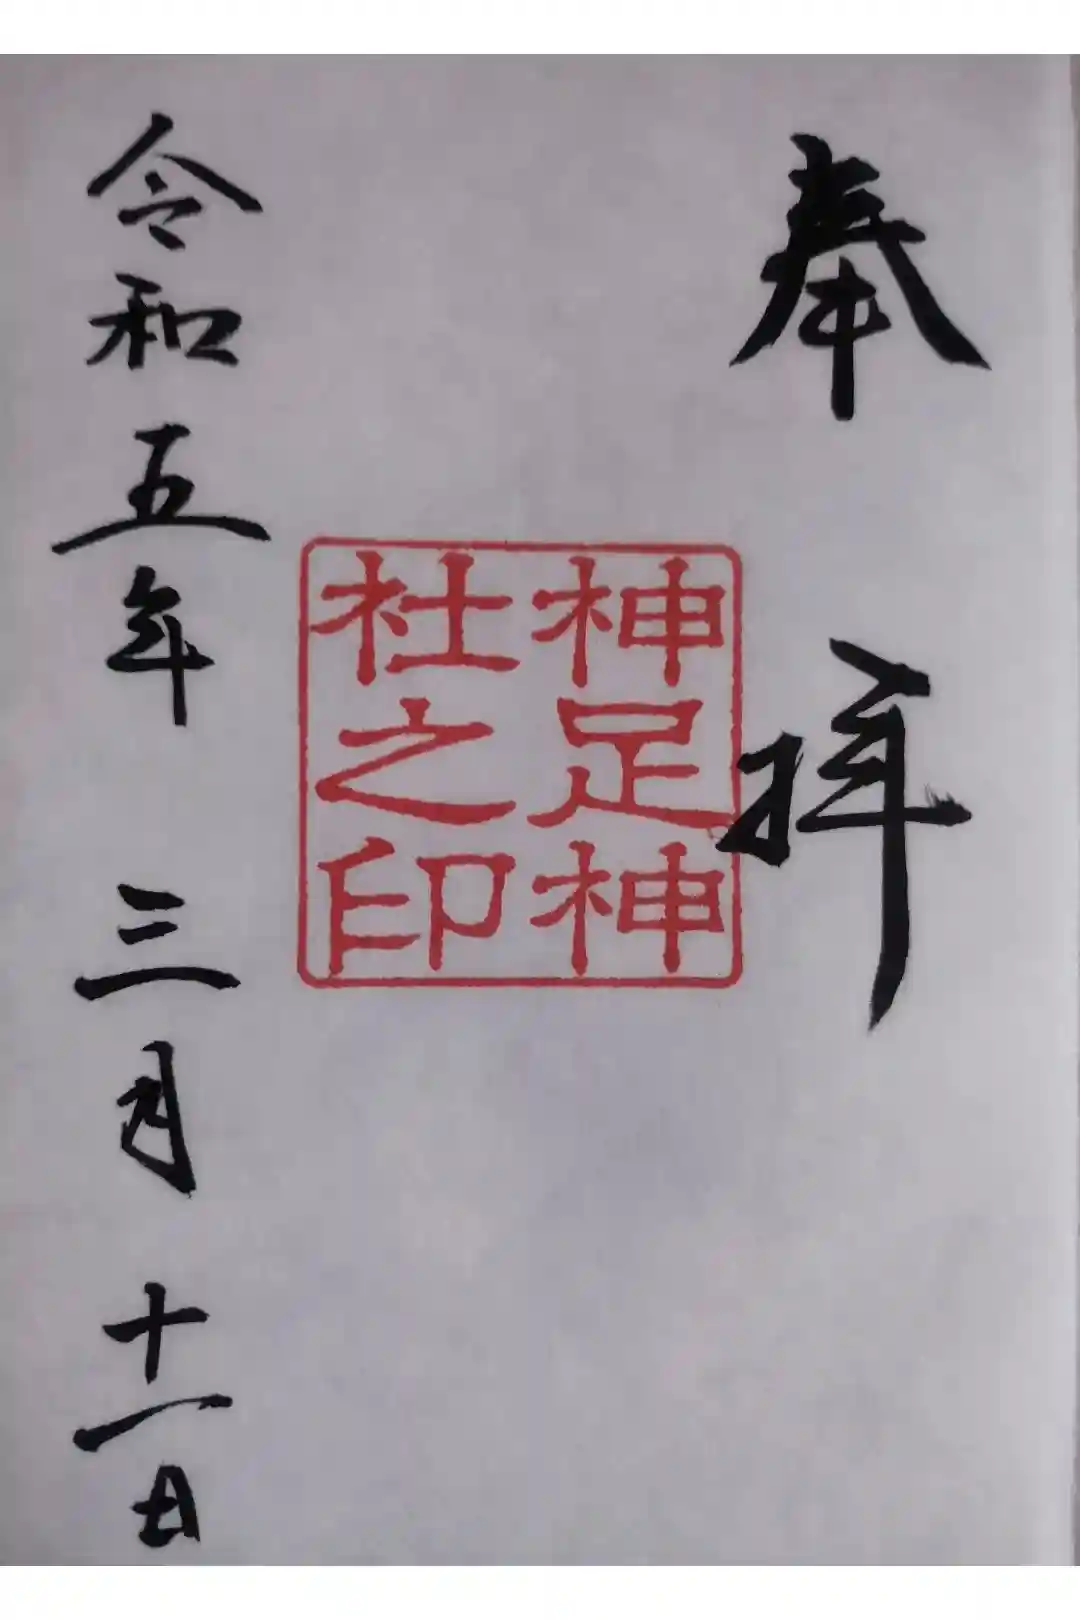 奉拝
神足神
社之印
令和五年三月十一日